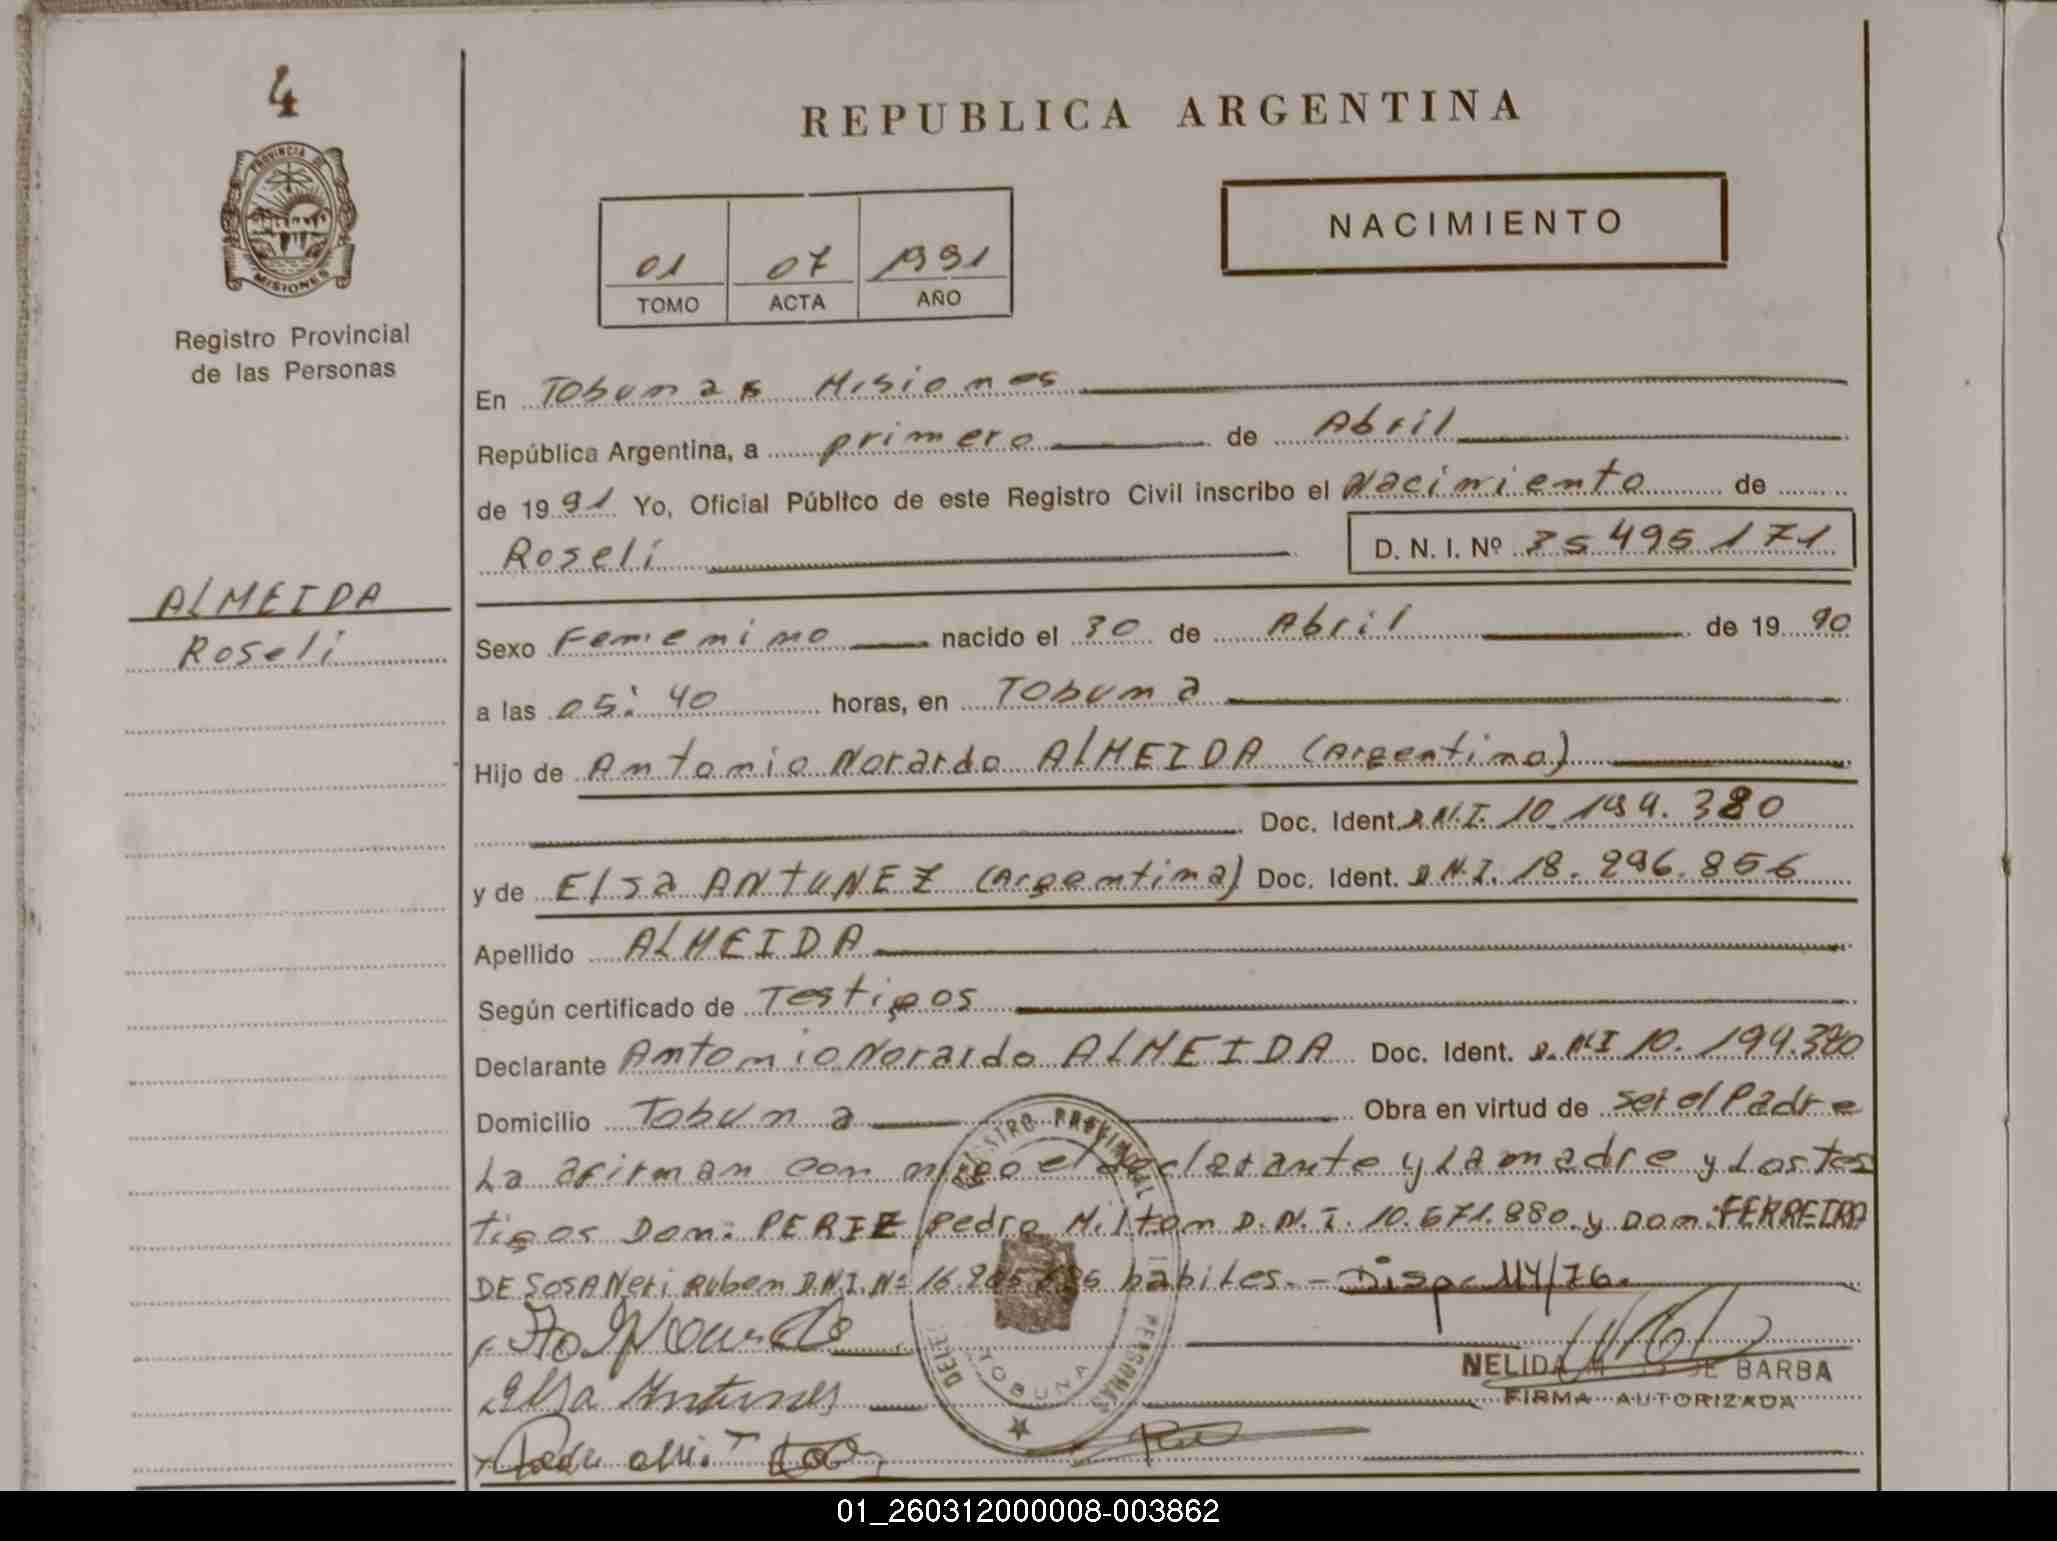 4
PROVINCIA DE
MISIONES
Registro Provincial
de las Personas
ALMEIDA
Roseli
REPUBLICA ARGENTINA
NACIMIENTO
01 07 1991
TOMO ACTA AÑO
En Tobuna Misiones
República Argentina, a primero de Abril
de 1991 Yo, Oficial Público de este Registro Civil inscribo el Nacimiento de
Roseli D. N. I. Nº 35495171
Sexo Femenino nacido el 30 de Abril de 1990
a las 05:40 horas, en Tobuna
Hijo de Antonio Norardo ALMEIDA (Argentino)
Doc. Ident. D.N.I. 10.194.380
y de Elsa ANTUNEZ (Argentina) Doc. Ident. D.N.I. 18.296.856
Apellido ALMEIDA
Según certificado de Testigos
Declarante Antonio Norardo ALMEIDA Doc. Ident. D.N.I 10.194.380
Domicilio Tobuna Obra en virtud de ser el Padre
La afirman con migo el declarante y La madre y Los tes
tigos Don: PERIE Pedro Milton D.N.I. 10.671.880 y Don: FERREIRA
DE SOSA Neri Ruben D.N.I. Nº habiles. - Disp. 114/76.
REGISTRO PROVINCIAL
PERSONAS
DELE.
TOBUNA
Elsa Antunes
NELIDA DE BARBA
FIRMA AUTORIZADA
01_260312000008-003862